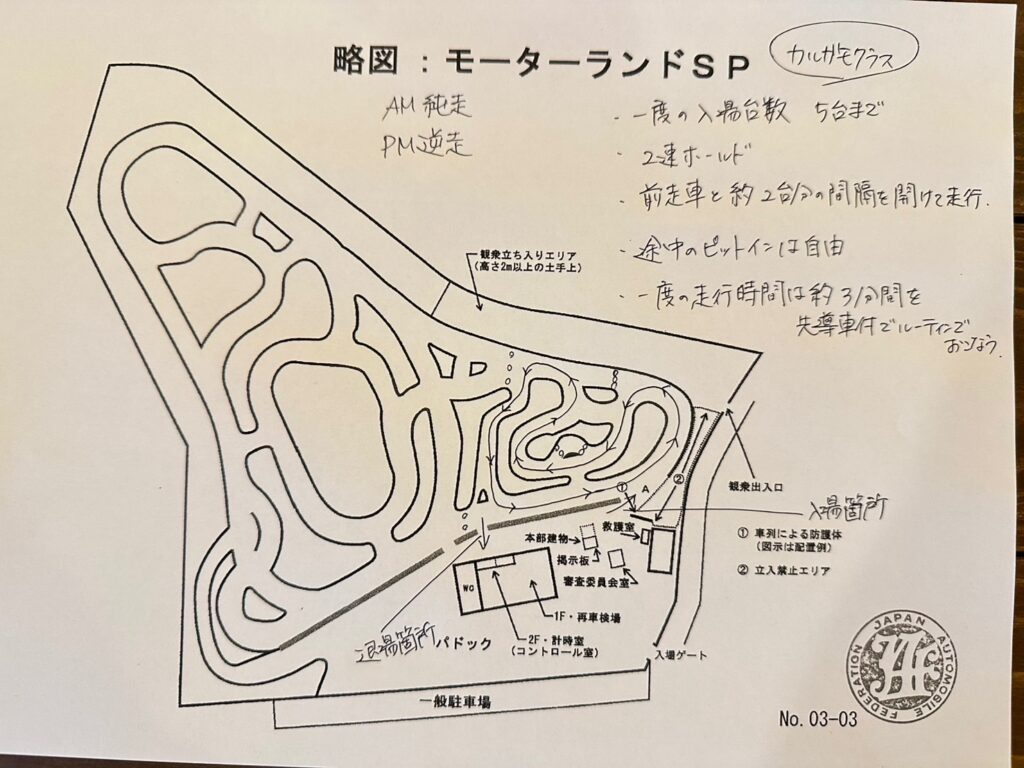 略図 : モーターランドSP
カルガモクラス
AM 純走
PM 逆走
・一度の入場台数 5台まで
・2速ホールド
・前走車と約2台分の間隔を開けて走行.
・途中のピットインは自由
・一度の走行時間は約31分間を
先導車付でルーティンで
おこなう.
観衆立ち入りエリア
(高さ2m以上の土手上)
観衆出入口
① A ②
入場箇所
救護室
本部建物
掲示板
審査委員会室
① 車列による防護体
(図示は配置例)
② 立入禁止エリア
WC
1F・再車検場
2F・計時室
(コントロール室)
退場箇所
パドック
入場ゲート
一般駐車場
JAPAN AUTOMOBILE FEDERATION
JAF
No. 03-03